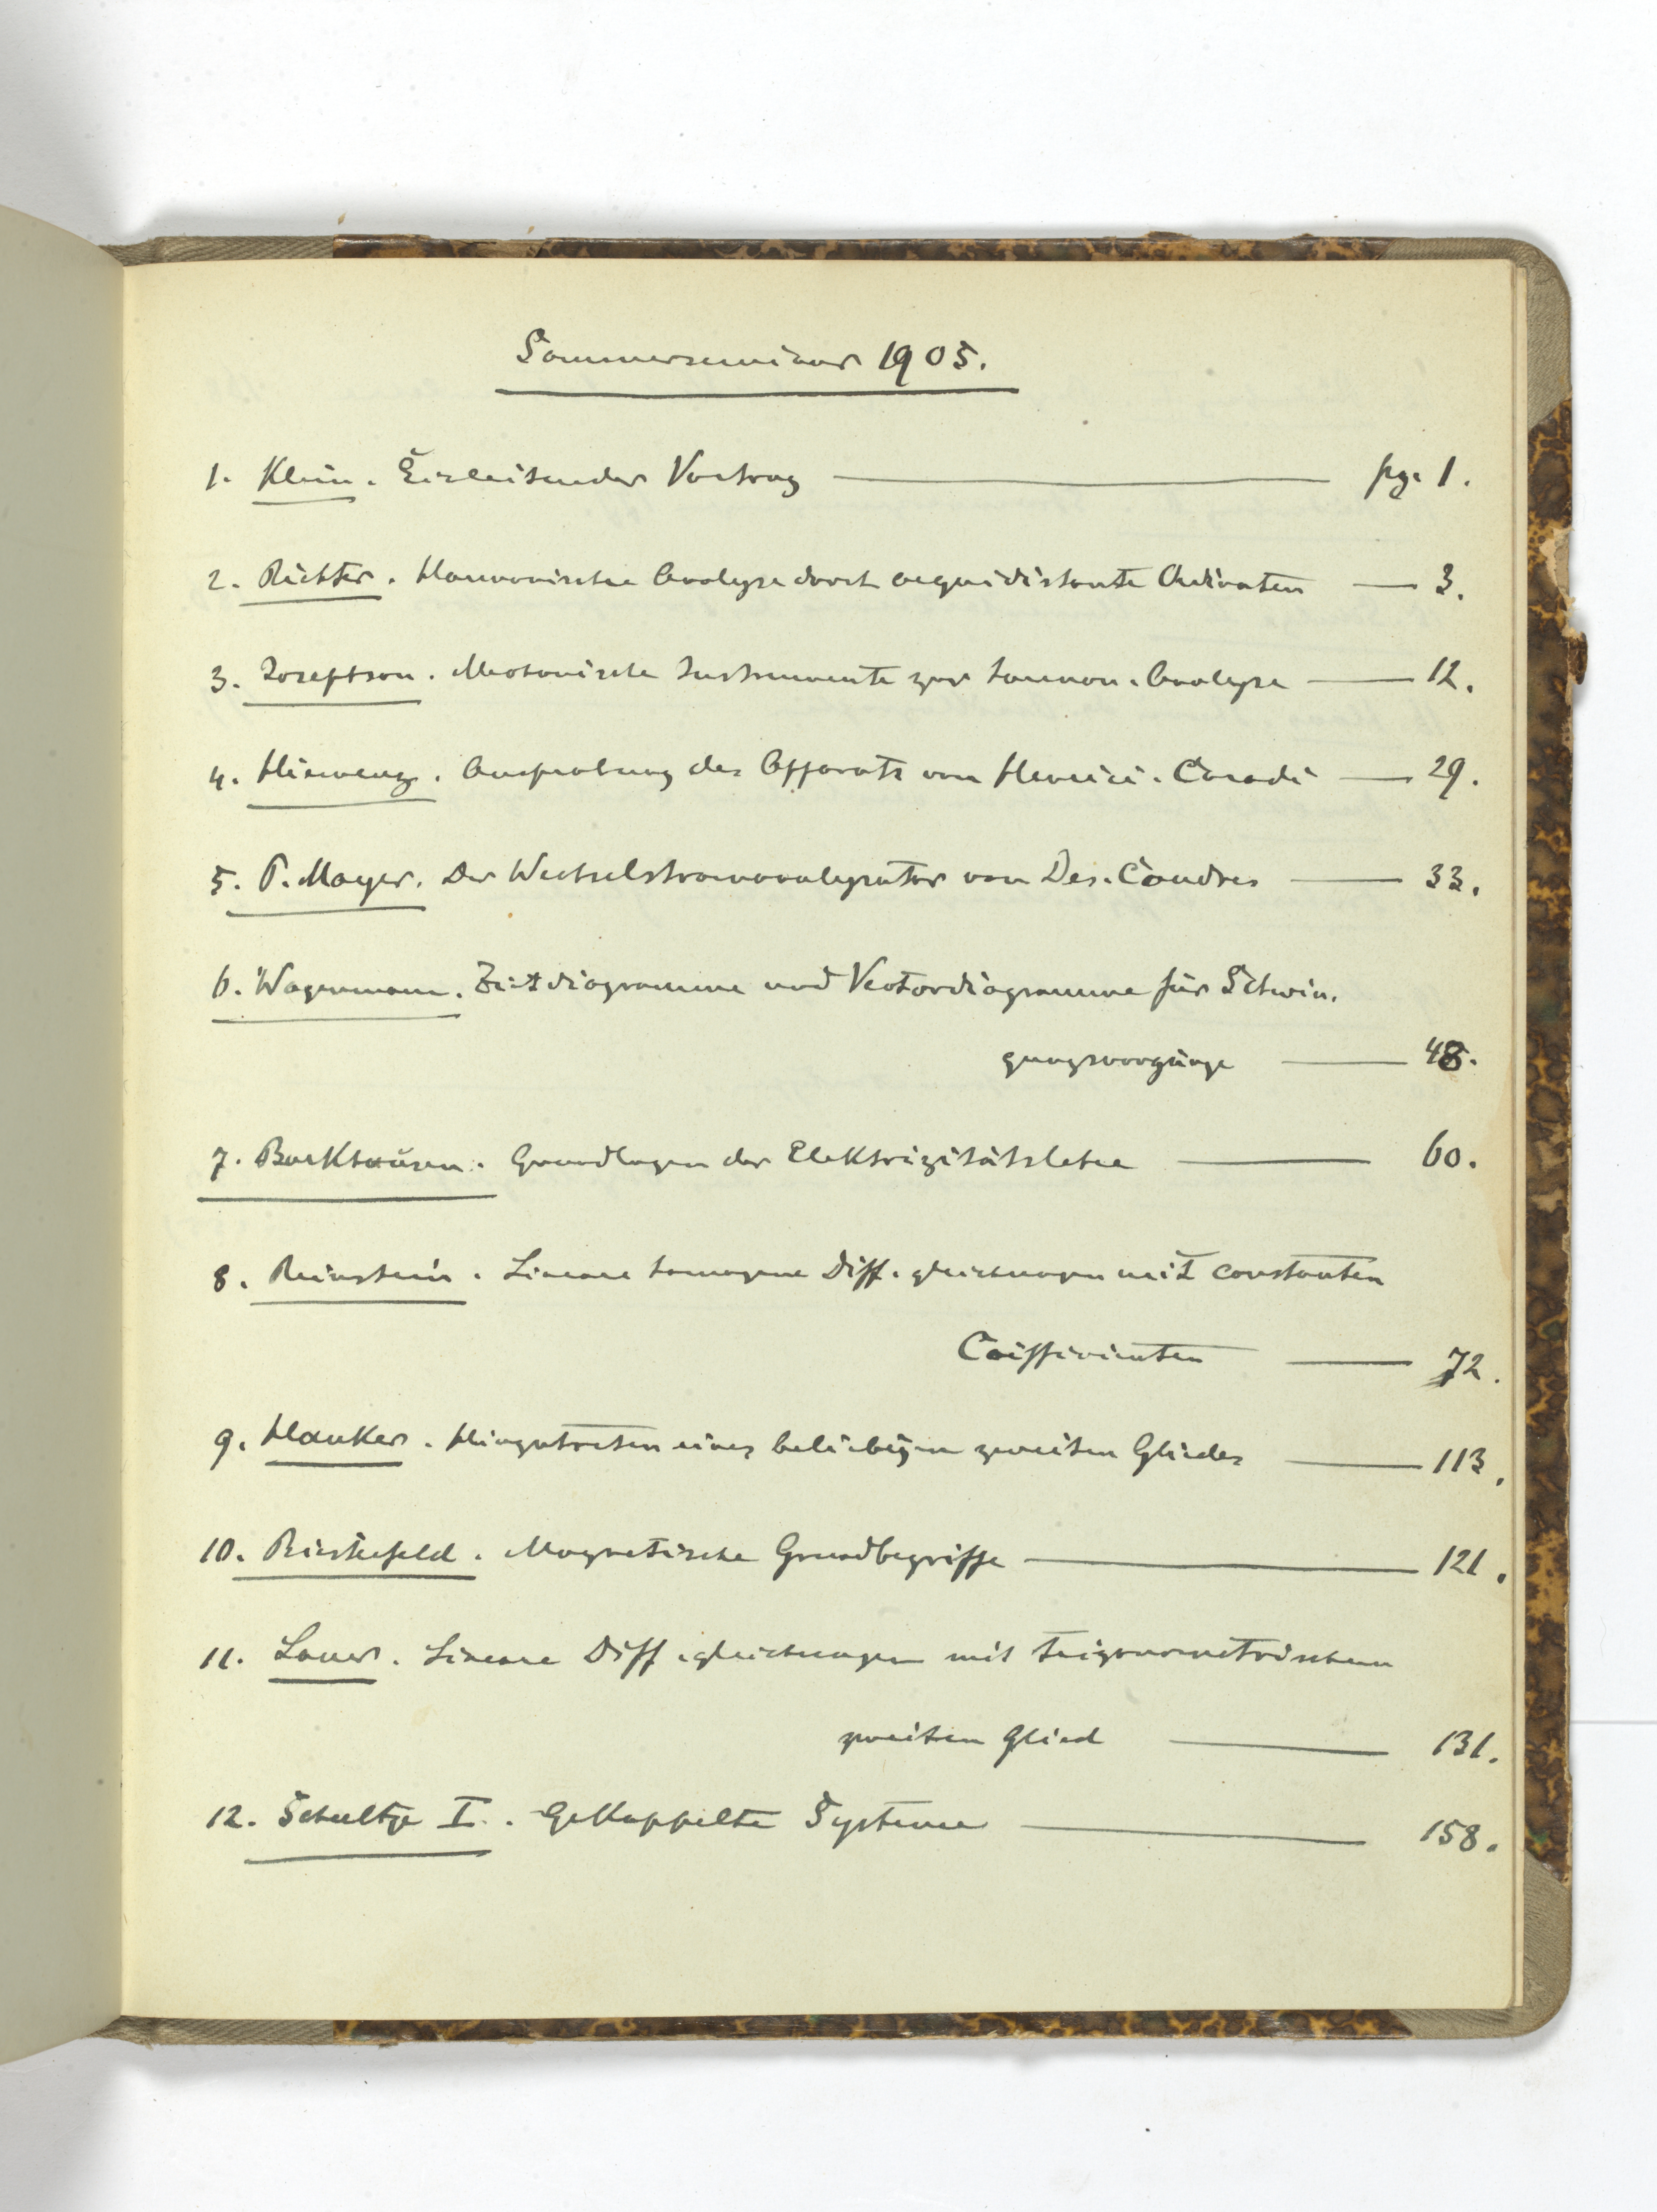 Sommerseminar 1905.
1. Klein. Einleitender Vortrag — pg. 1.
2. Richter. Harmonische Analyse durch aequidistante Ordinaten — 3.
3. Josephson. Mechanische Instrumente zur harmon. Analyse — 12.
4. Hiemenz. Ausprobung des Apparats von Henrici-Coradi — 29.
5. P. Mayer. Der Wechselstromanalysator von Des-Coudres — 33.
6. Wagenmann. Zeitdiagramme und Vectordiagramme für Schwin-
gungsvorgänge — 48.
7. Barkhausen. Grundlagen der Elektrizitätslehre — 60.
8. Reinstein. Lineare homogene Diff.gleichungen mit constanten
Coefficienten — 72.
9. Hanker. Hinzutreten eines beliebigen zweiten Gliedes — 113.
10. Biestefeld. Magnetische Grundbegriffe — 121.
11. Lauer. Lineare Diff.gleichungen mit trigonometrischem
zweiten Glied — 131.
12. Schultze I. Gekoppelte Systeme — 158.